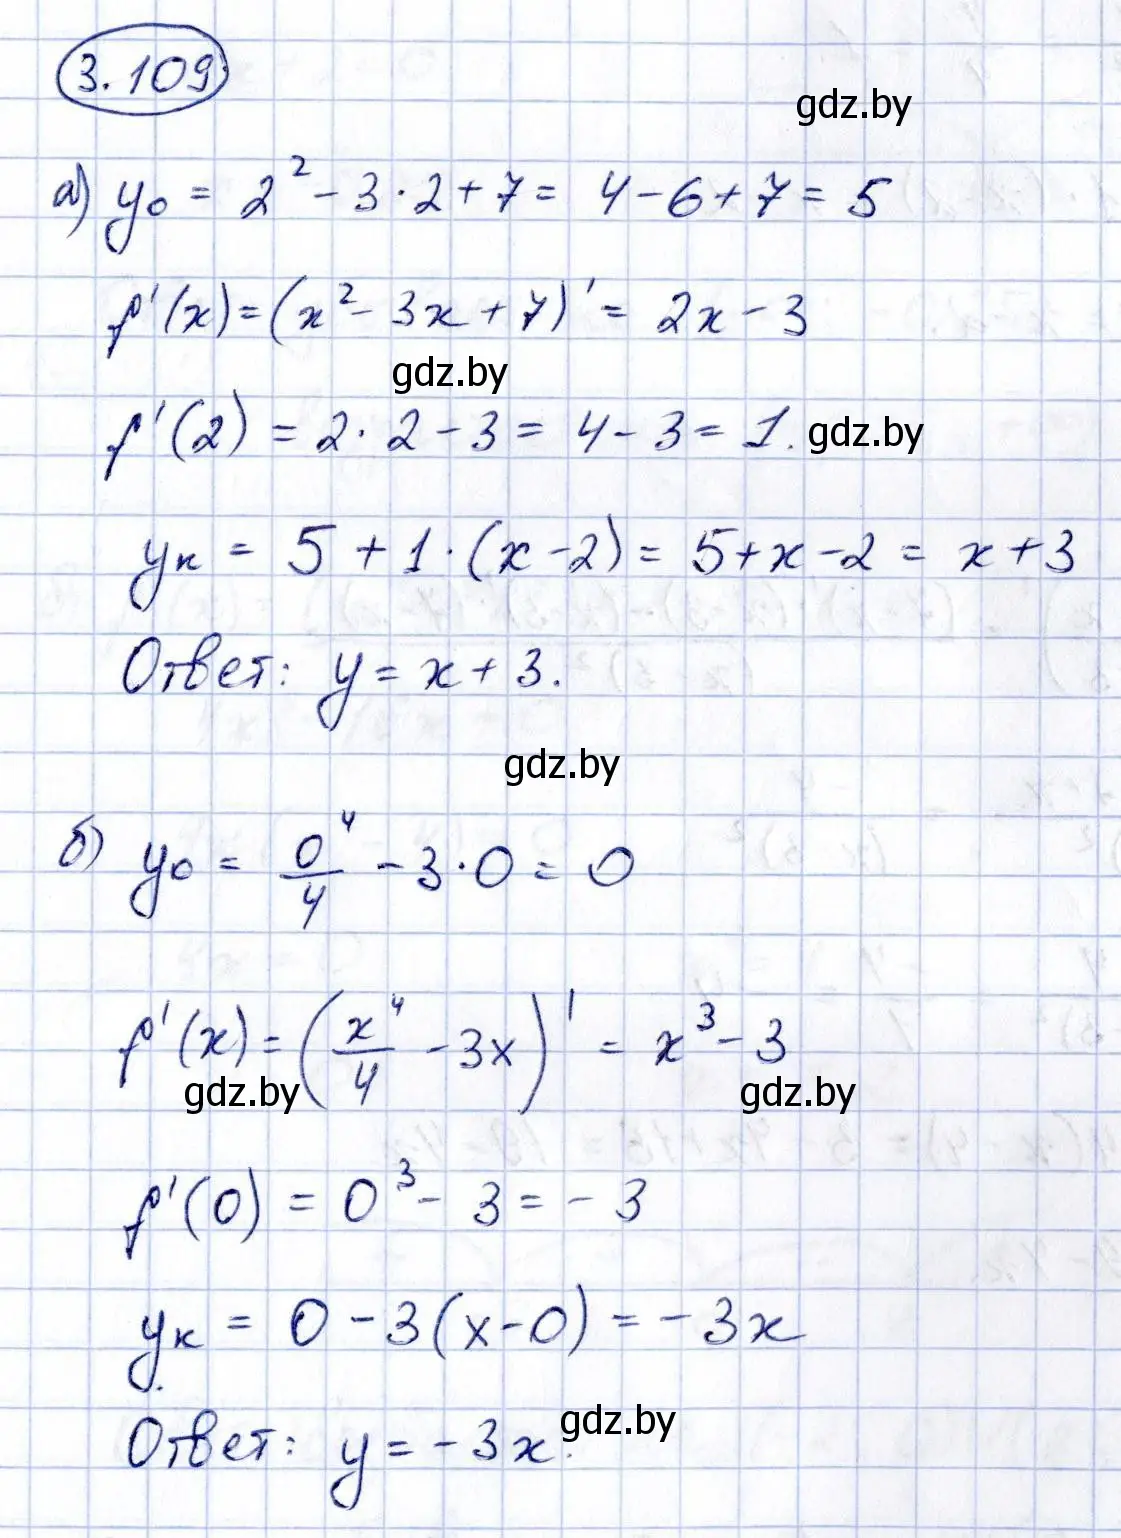 3.109
gdz.by
а) y₀ = 2² - 3·2 + 7 = 4 - 6 + 7 = 5
f'(x) = (x² - 3x + 7)' = 2x - 3
gdz.by
f'(2) = 2·2 - 3 = 4 - 3 = 1. gdz.by
yₖ = 5 + 1·(x - 2) = 5 + x - 2 = x + 3
Ответ: y = x + 3.
gdz.by
б) y₀ = 0⁴/4 - 3·0 = 0
f'(x) = (x⁴/4 - 3x)' = x³ - 3
gdz.by gdz.by
f'(0) = 0³ - 3 = - 3
yₖ = 0 - 3(x - 0) = - 3x
gdz.by
Ответ: y = - 3x.